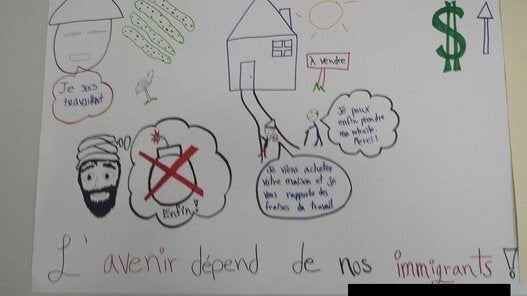 Je suis
travaillant
À vendre
$
Je peux
enfin prendre
ma retraite.
Merci!
Enfin!
Je viens acheter
votre maison et je
vous rapporte des
fraises du travail.
L'avenir dépend de nos immigrants!